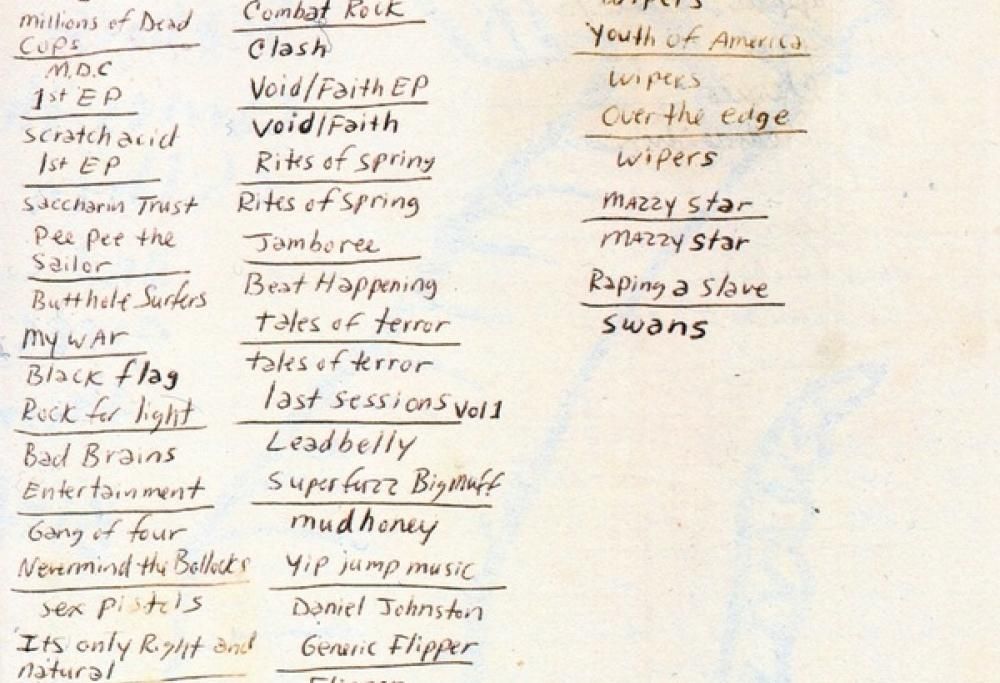 millions of Dead
Cops
M.D.C
1st EP
scratch acid
1st EP
Saccharin Trust
Pee Pee the
Sailor
Butthole Surfers
My WAr
Black flag
Rock for light
Bad Brains
Entertainment
Gang of four
Nevermind the Bollocks
sex pistols
Its only Right and
natural
Combat Rock
Clash
Void/Faith EP
Void/Faith
Rites of spring
Rites of Spring
Jamboree
Beat Happening
tales of terror
tales of terror
last sessions Vol 1
Leadbelly
Superfuzz Bigmuff
mudhoney
Yip jump music
Daniel Johnston
Generic Flipper
Flipper
Wipers
Youth of America
Wipers
Over the edge
Wipers
MAZZY Star
MAZZY Star
Raping a Slave
Swans